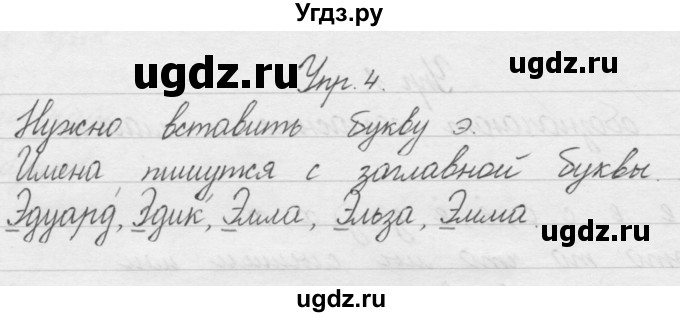 Угдз.ру
ugdz.ru
Упр. 4.
ugdz.ru
Нужно вставить букву э.
Имена пишутся с заглавной буквы.
Эдуард, Эдик, Элла, Эльза, Эмма
ugdz.ru
ugdz.ru
ugdz.ru